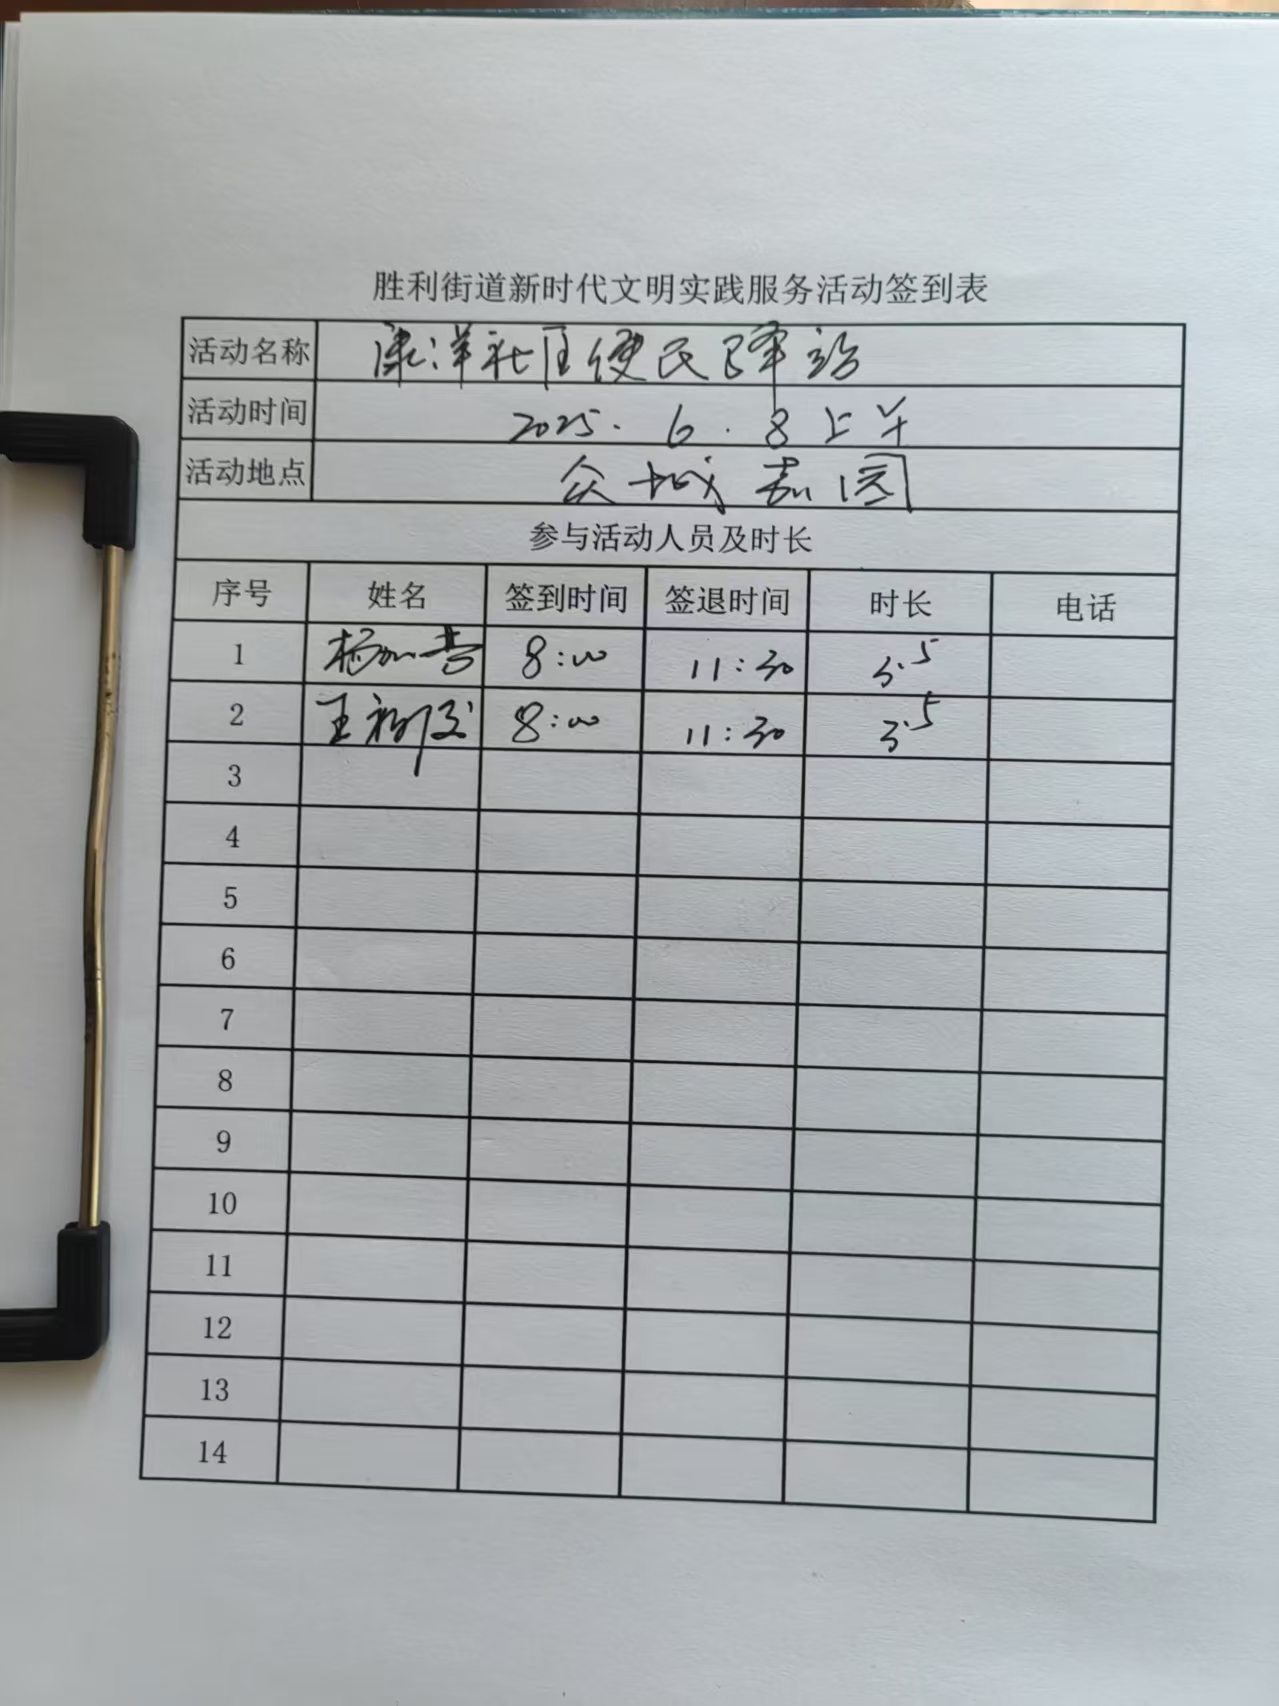 胜利街道新时代文明实践服务活动签到表
活动名称 康洋社区便民驿站
活动时间 2025.6.8上午
活动地点 众城嘉园
参与活动人员及时长
序号 姓名 签到时间 签退时间 时长 电话
1 8:00 11:30 3.5
2 王 8:00 11:30 3.5
3
4
5
6
7
8
9
10
11
12
13
14